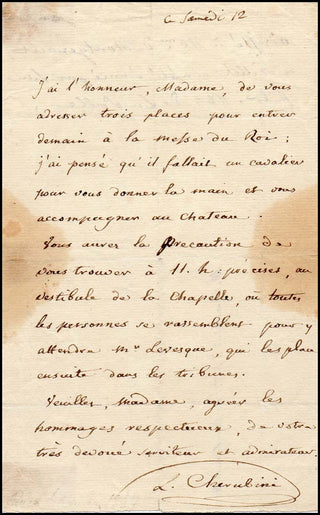 Ce Samedi 12
J'ai l'honneur, Madame, de vous
adresser trois places pour entrer
demain à la messe du Roi;
j'ai pensé qu'il fallait un cavalier
pour vous donner la main et vous
accompagner au Chateau.
Vous aurez la précaution de
vous trouver à 11. h: précises, au
vestibule de la Chapelle, où toutes
les personnes se rassemblent pour y
attendre Mr Levesque, qui les place
ensuite dans les tribunes.
Veuillez, Madame, agréer les
hommages respectueux, de votre
très devoué serviteur et admirateur
L. Cherubini